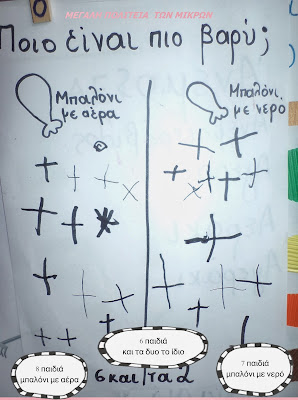 ΜΕΓΑΛΗ ΠΟΛΙΤΕΙΑ ΤΩΝ ΜΙΚΡΩΝ
Ποιο είναι πιο βαρύ;
Μπαλόνι
με αέρα
Μπαλόνι
με νερό
8 παιδιά
μπαλόνι με αέρα
6 παιδιά
και τα δυο το ίδιο
7 παιδιά
μπαλόνι με νερό
6 και/τα 2